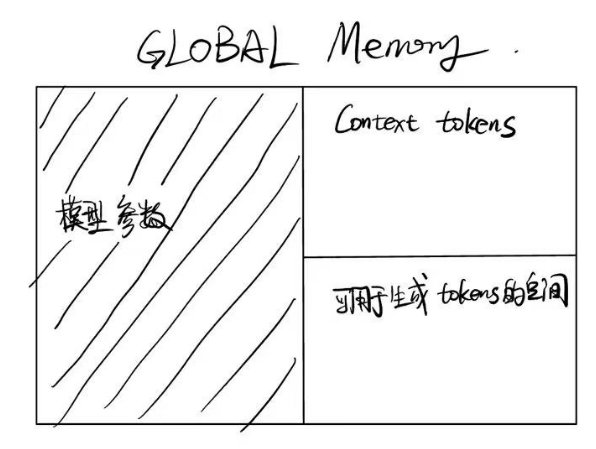 GLOBAL Memory.
模型参数
Context tokens
可用于生成 tokens的空间